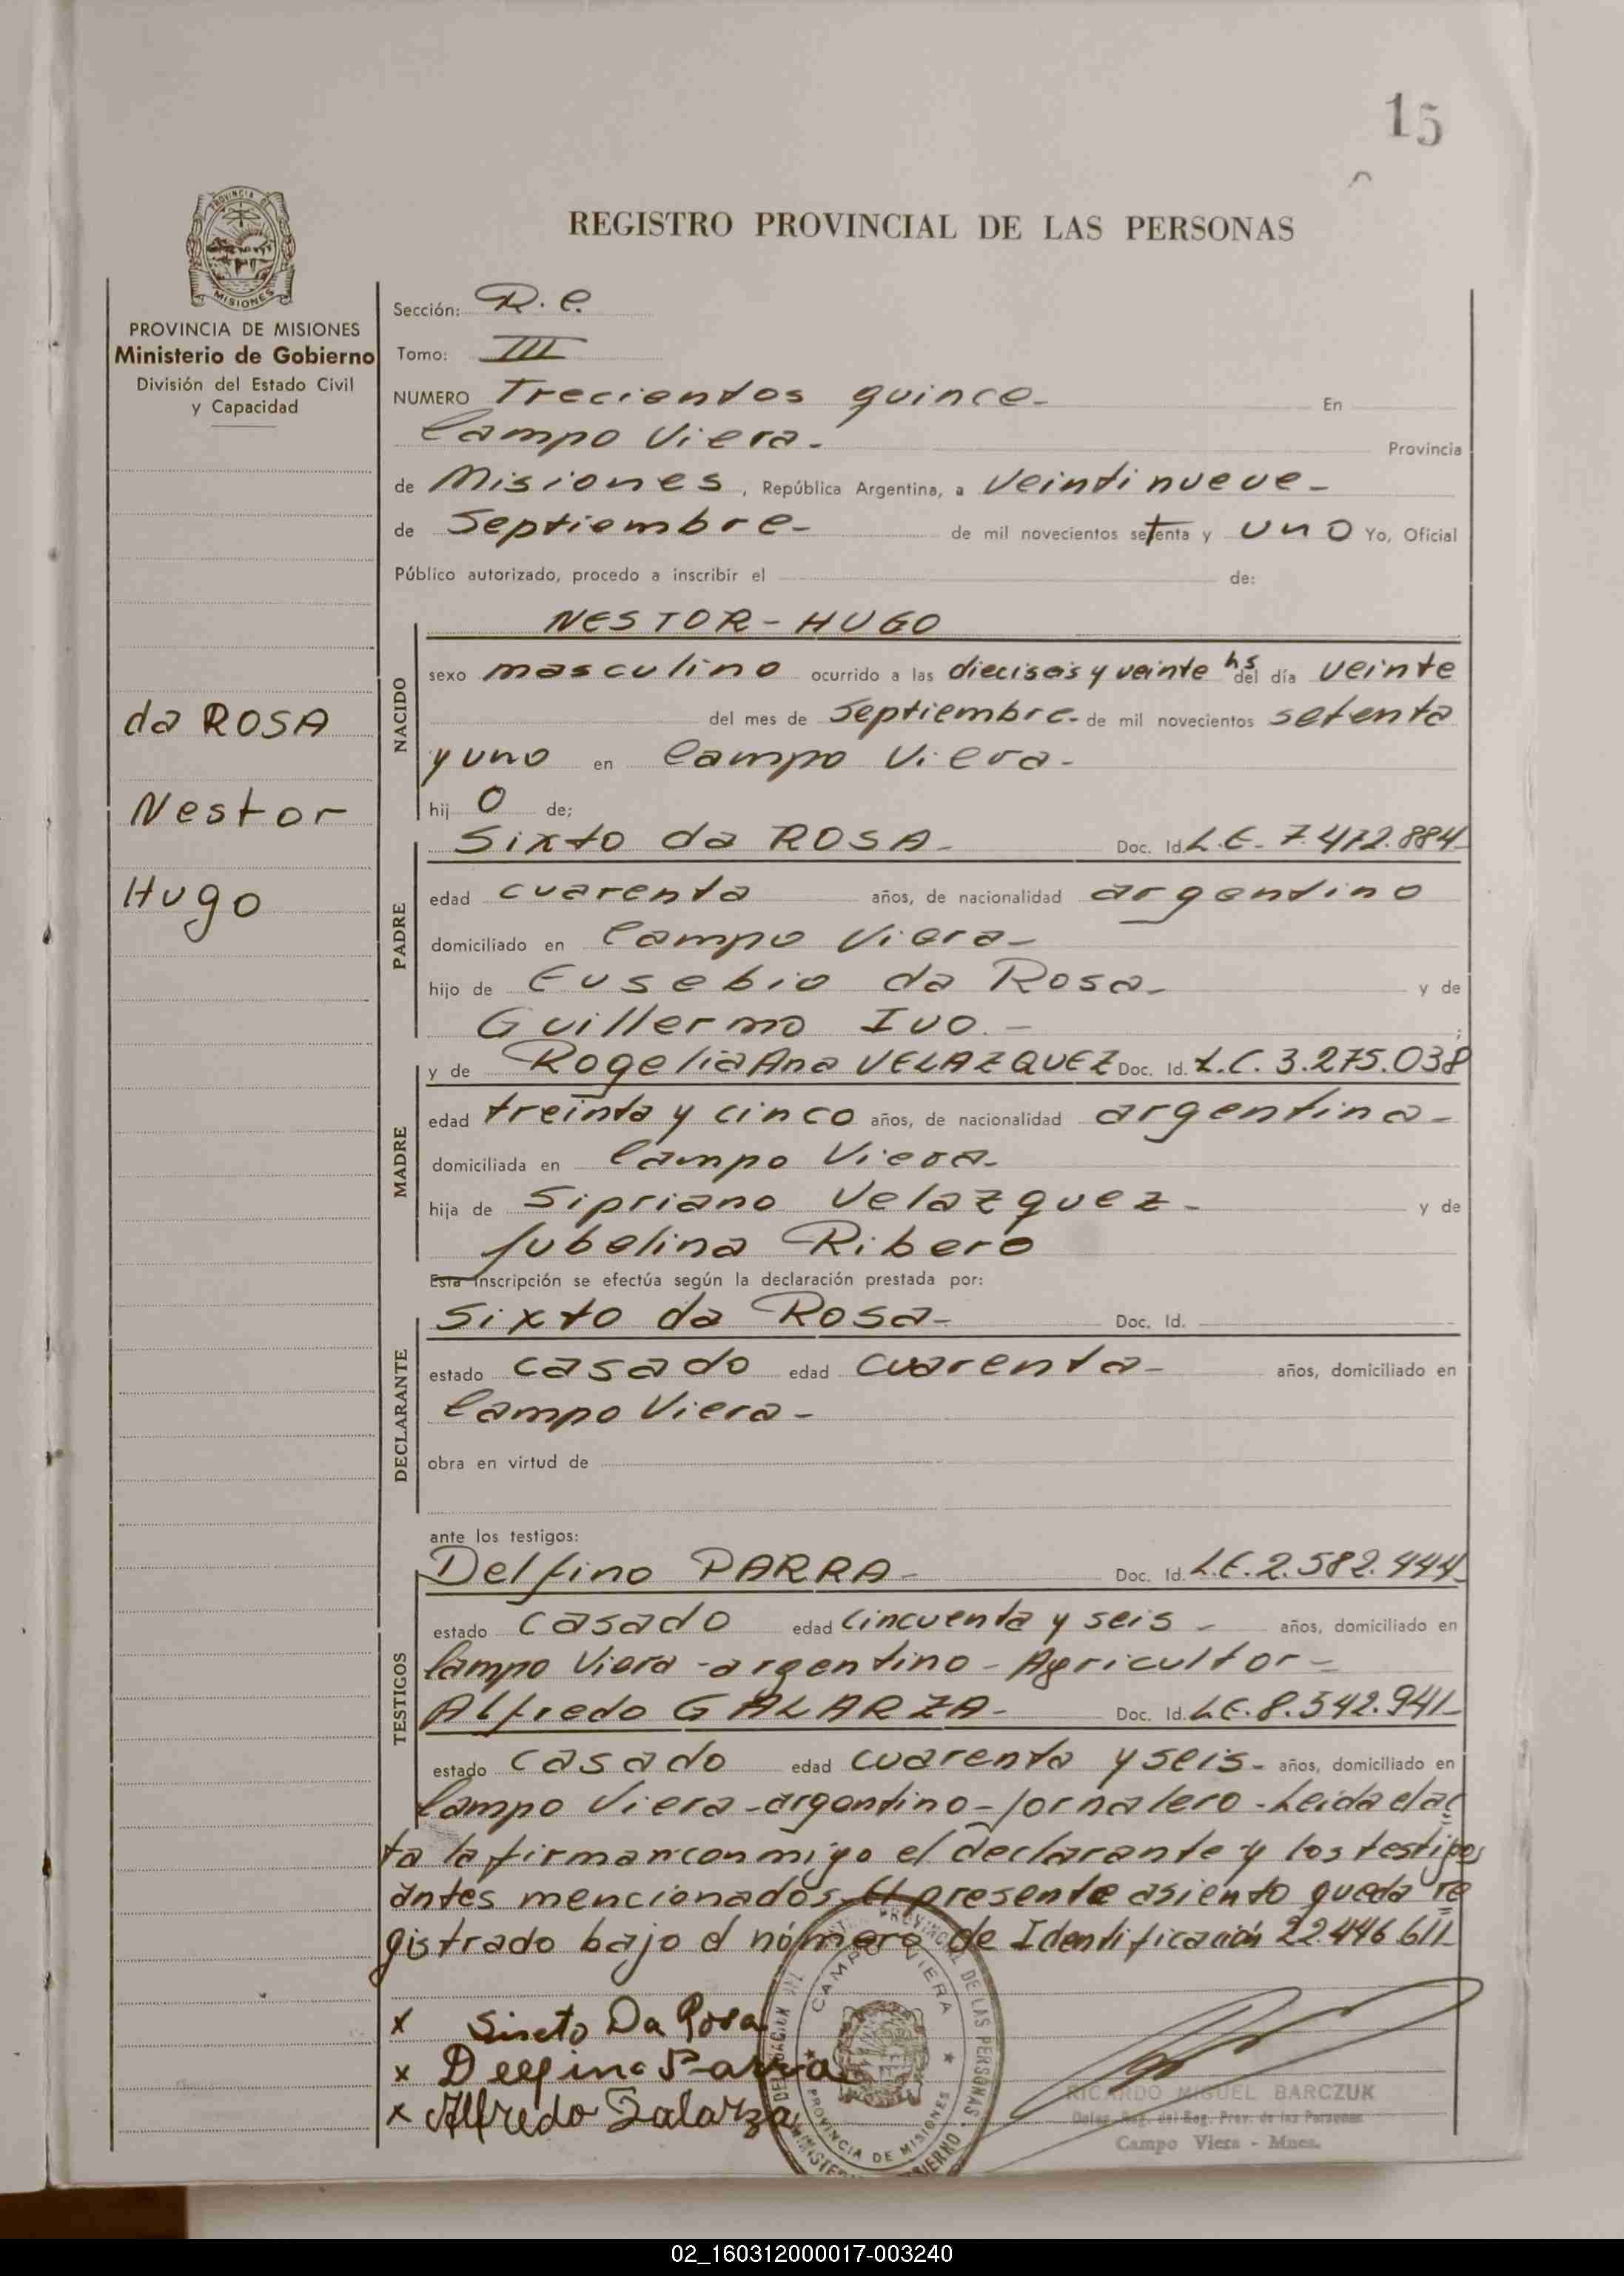 15
REGISTRO PROVINCIAL DE LAS PERSONAS
PROVINCIA DE
MISIONES
PROVINCIA DE MISIONES
Ministerio de Gobierno
División del Estado Civil
y Capacidad
da ROSA
Nestor
Hugo
Sección:
Tomo: III
NUMERO Trecientos quince- En
Campo Viera- Provincia
de Misiones, República Argentina, a Veintinueve-
de Septiembre- de mil novecientos setenta y uno Yo, Oficial
Público autorizado, procedo a inscribir el de:
NESTOR-HUGO
NACIDO
sexo masculino ocurrido a las dieciseis y veinte hs del día veinte
del mes de Septiembre- de mil novecientos setenta
y uno en Campo Viera-
hij o de;
Sixto da ROSA- Doc. Id. L.E- 7.412.884-
PADRE
edad cuarenta años, de nacionalidad argentino
domiciliado en Campo Viera-
hijo de Eusebio da Rosa- y de
Guillermo Ivo.- ;
y de Rogelia Ana VELAZQUEZ Doc. Id. L.C. 3.275.038
MADRE
edad treinta y cinco años, de nacionalidad argentina-
domiciliada en Campo Viera-
hija de Sipriano Velazquez- y de
Jubelina Ribero
Esta inscripción se efectúa según la declaración prestada por:
Sixto da Rosa- Doc. Id.
DECLARANTE
estado casado edad cuarenta- años, domiciliado en
Campo Viera-
obra en virtud de
ante los testigos:
Delfino PARRA- Doc. Id. L.E. 2.582.444-
TESTIGOS
estado casado edad cincuenta y seis- años, domiciliado en
Campo Viera-argentino-Agricultor-
Alfredo GALARZA- Doc. Id. L.E. 8.542.941-
estado casado edad cuarenta y seis- años, domiciliado en
Campo Viera-argentino-Jornalero-Leida el ac
ta la firman conmigo el declarante y los testigos
antes mencionados-El presente asiento queda re
gistrado bajo el número de Identificación 22.446.611-
x Sixeto Da Rosa
x Delfino Parra
x Alfredo Galarza
CAMPO VIERA
PROVINCIA DE MISIONES
RICARDO MIGUEL BARCZUK
Deleg. Reg. del Reg. Prov. de las Personas
Campo Viera - Mnes.
02_160312000017-003240